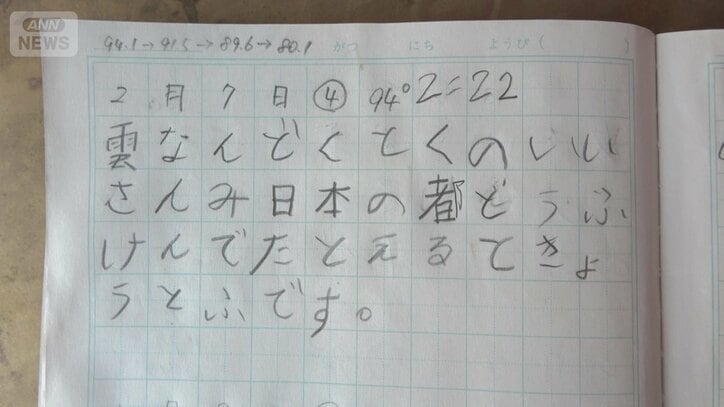 ANN NEWS
94.1→91.5→89.6→80.1 がつ にち ようび( )
2月7日④ 94°2=22
雲なんどくとくのいい
さんみ日本の都どうふ
けんでたとえるときょ
うとふです。